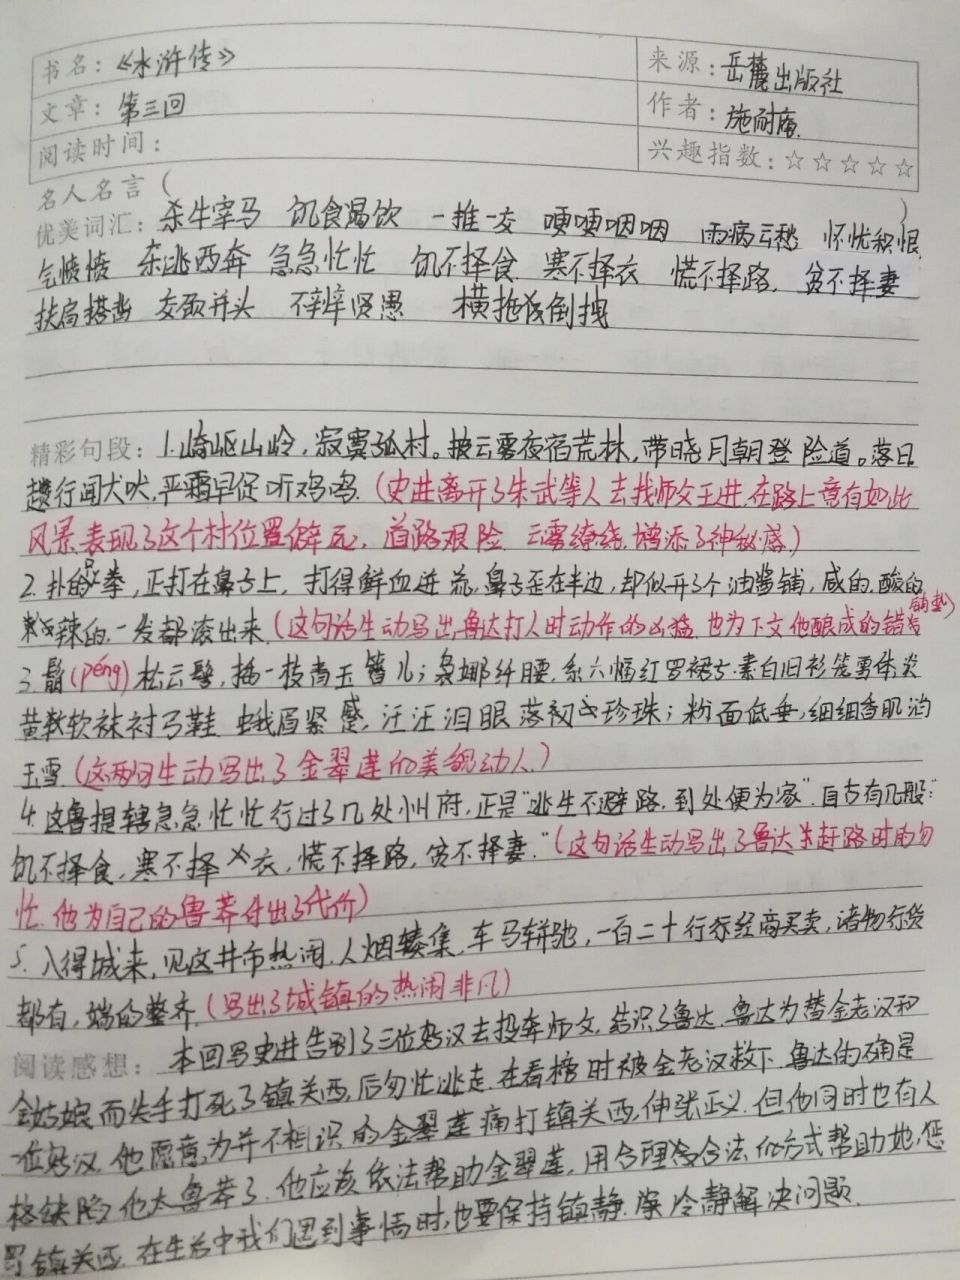 书名：《水浒传》 来源：岳麓出版社
文章：第三回 作者：施耐庵.
阅读时间： 兴趣指数：☆☆☆☆☆
名人名言（ ）
优美词汇：杀牛宰马 饥食渴饮 一推一交 哽哽咽咽 雨病云愁 怀忧积恨
气愤愤 东逃西奔 急急忙忙 饥不择食 寒不择衣 慌不择路. 贫不择妻
扶肩搭背 交颈并头 不辨贤愚 横拖倒拽
精彩句段：1.崎岖山岭，寂寞孤村。披云雾夜宿荒林，带晓月朝登险道。落日
趱行闻犬吠，严霜早促听鸡鸣.（史进离开了朱武等人去找师父王进.在路上竟有如此
风景.表现了这个村位置僻远，道路艰险.云雾缭绕.增添了神秘感）
2.扑的只拳，正打在鼻子上，打得鲜血迸流，鼻子歪在半边，却似开了个油酱铺，咸的.酸的.
辣的.一发都滚出来.（这句话生动写出鲁达打人时动作的凶猛.也为下文他酿成的错铺垫）
3.鬅(péng)松云髻，插一枝青玉簪儿；袅娜纤腰，系六幅红罗裙子.素白旧衫笼雪体，淡
黄软袜衬弓鞋.蛾眉紧蹙，汪汪泪眼落珍珠；粉面低垂，细细香肌消
玉雪.（这两句生动写出了金翠莲的美貌动人.）
4.这鲁提辖急急忙忙行过了几处州府，正是“逃生不避路，到处便为家”.自古有几般：“
饥不择食，寒不择衣，慌不择路，贫不择妻.”（这句话生动写出了鲁达赶路时的匆
忙.他为自己的鲁莽付出了代价）
5.入得城来，见这井市热闹.人烟辏集，车马軿驰，一百二十行经商买卖，诸物行货
都有，端的整齐.（写出了城镇的热闹非凡）
阅读感想：本回写史进告别了三位好汉去投奔师父，结识了鲁达.鲁达为替金老汉和
金姑娘而失手打死了镇关西，后匆忙逃走.在看榜时被金老汉救下.鲁达的确是
一位好汉.他愿意为并不相识的金翠莲痛打镇关西，伸张正义.但他同时也有人
格缺陷.他太鲁莽了.他应该依法帮助金翠莲，用合理合法的方式帮助她，惩
罚镇关西.在生活中我们遇到事情时，也要保持镇静.冷静解决问题.